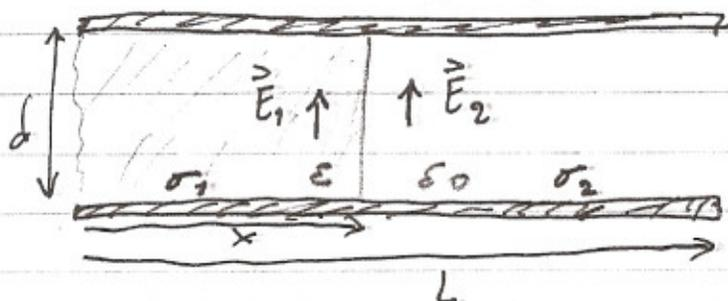 d E⃗₁ E⃗₂
σ₁ ε ε₀ σ₂
x
L